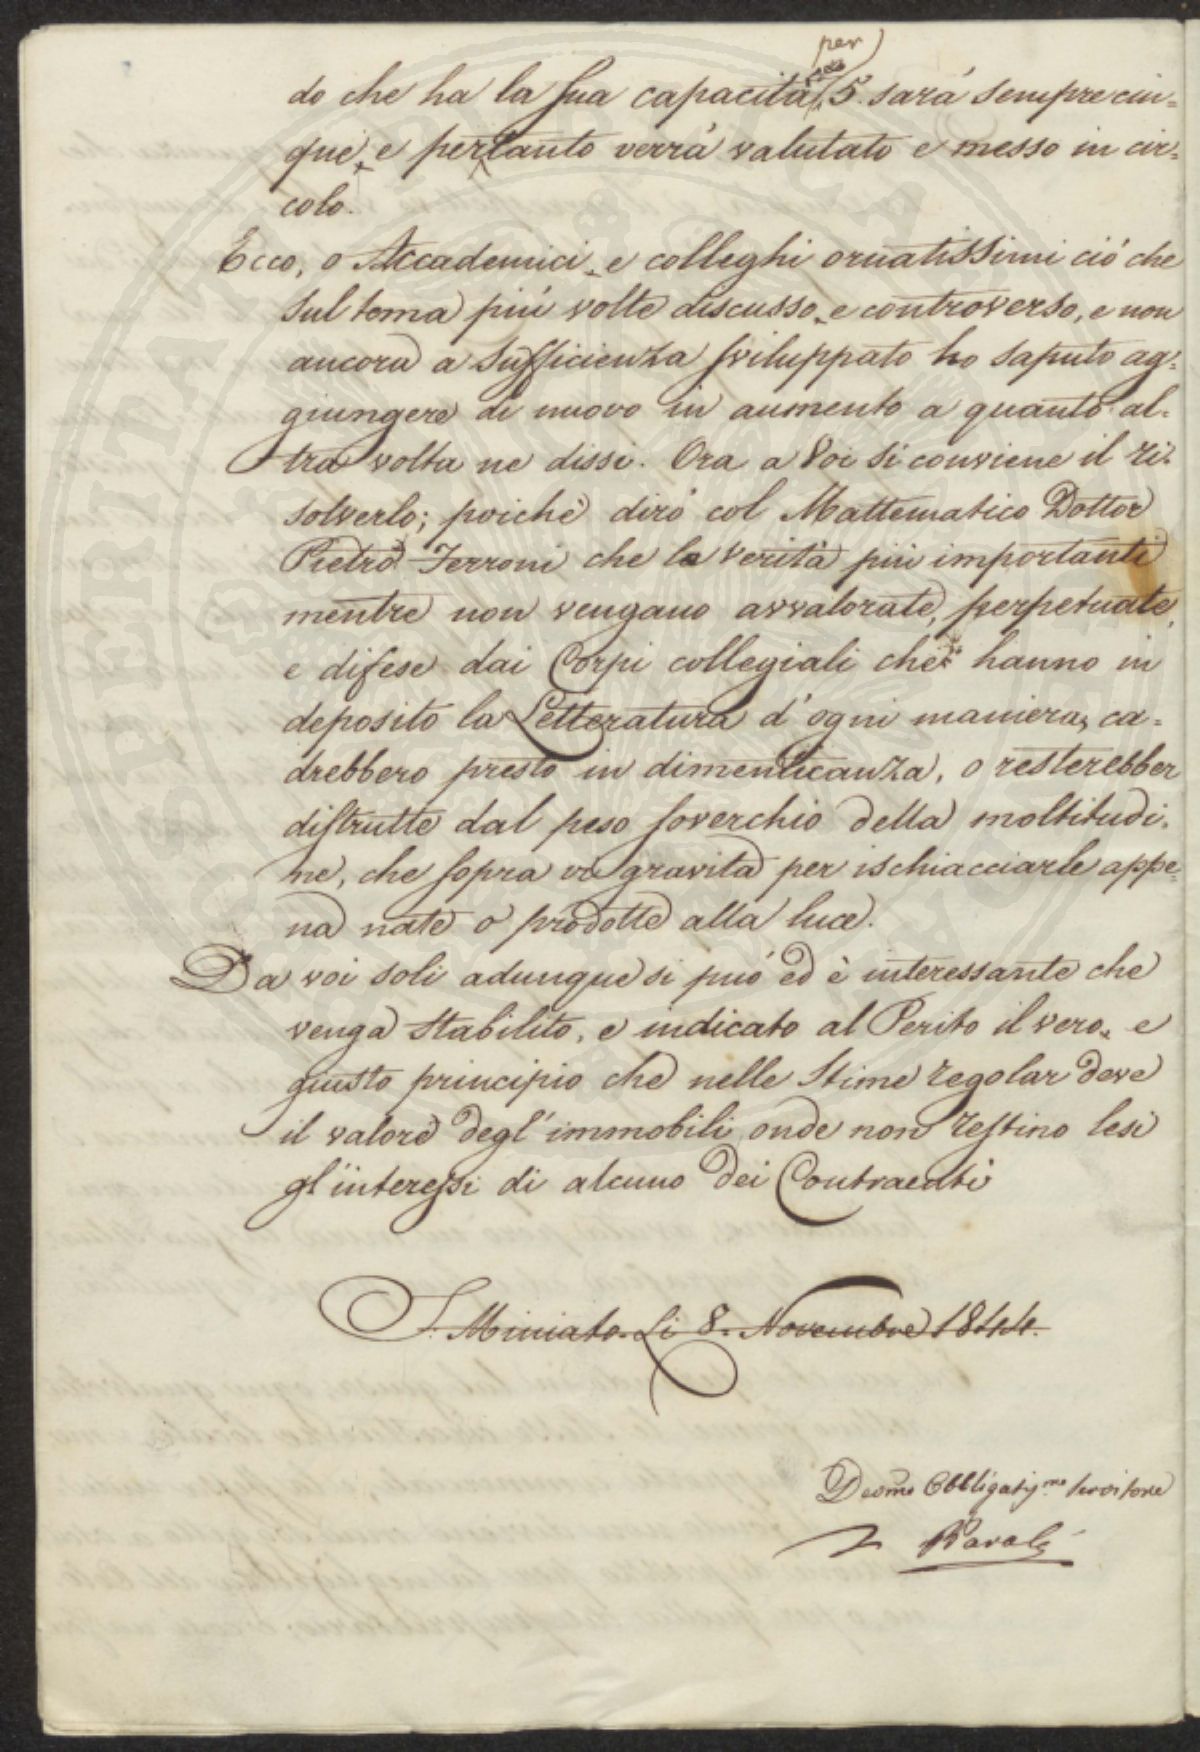 per
do che ha la sua capacità 5. sarà sempre cin=
que, e pertanto verrà valutato e messo in cir=
colo.
Ecco, o Accademici, e colleghi ornatissimi ciò che
sul tema più volte discusso, e controverso, e non
ancora a sufficienza sviluppato ho saputo ag=
giungere di nuovo in aumento a quanto al=
tra volta ne dissi. Ora a Voi si conviene il ri=
solverlo; poichè dirò col Mattematico Dottor
Pietro Ferroni che le verità più importanti
mentre non vengano avvalorate, perpetuate,
e difese dai Corpi collegiali che hanno in
deposito la Letteratura d'ogni maniera, ca=
drebbero presto in dimenticanza, o resterebber
distrutte dal peso soverchio della moltitudi=
ne, che sopra vi gravita per ischiacciarle appe=
na nate o prodotte alla luce.
Da voi soli adunque si può ed è interessante che
venga stabilito, e indicato al Perito il vero, e
giusto principio che nelle Stime regolar deve
il valore degl'immobili onde non restino lesi
gl'interessi di alcuno dei Contraenti
S. Miniato Li 8. Novembre 1844.
Devmo Obbligatismo servitore